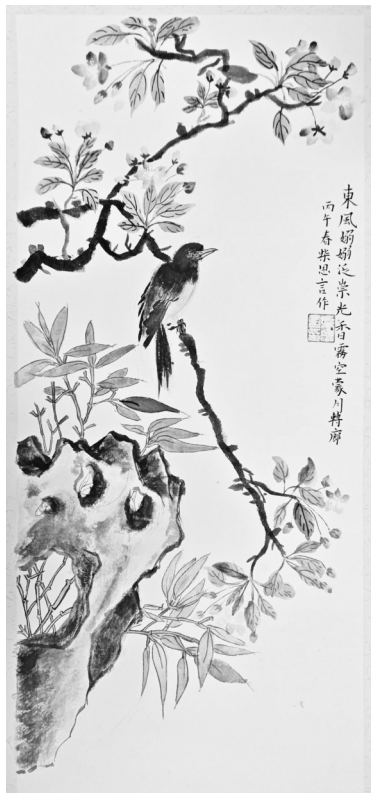 東風嫋嫋泛崇光香霧空蒙月轉廊
丙午春柴思言作